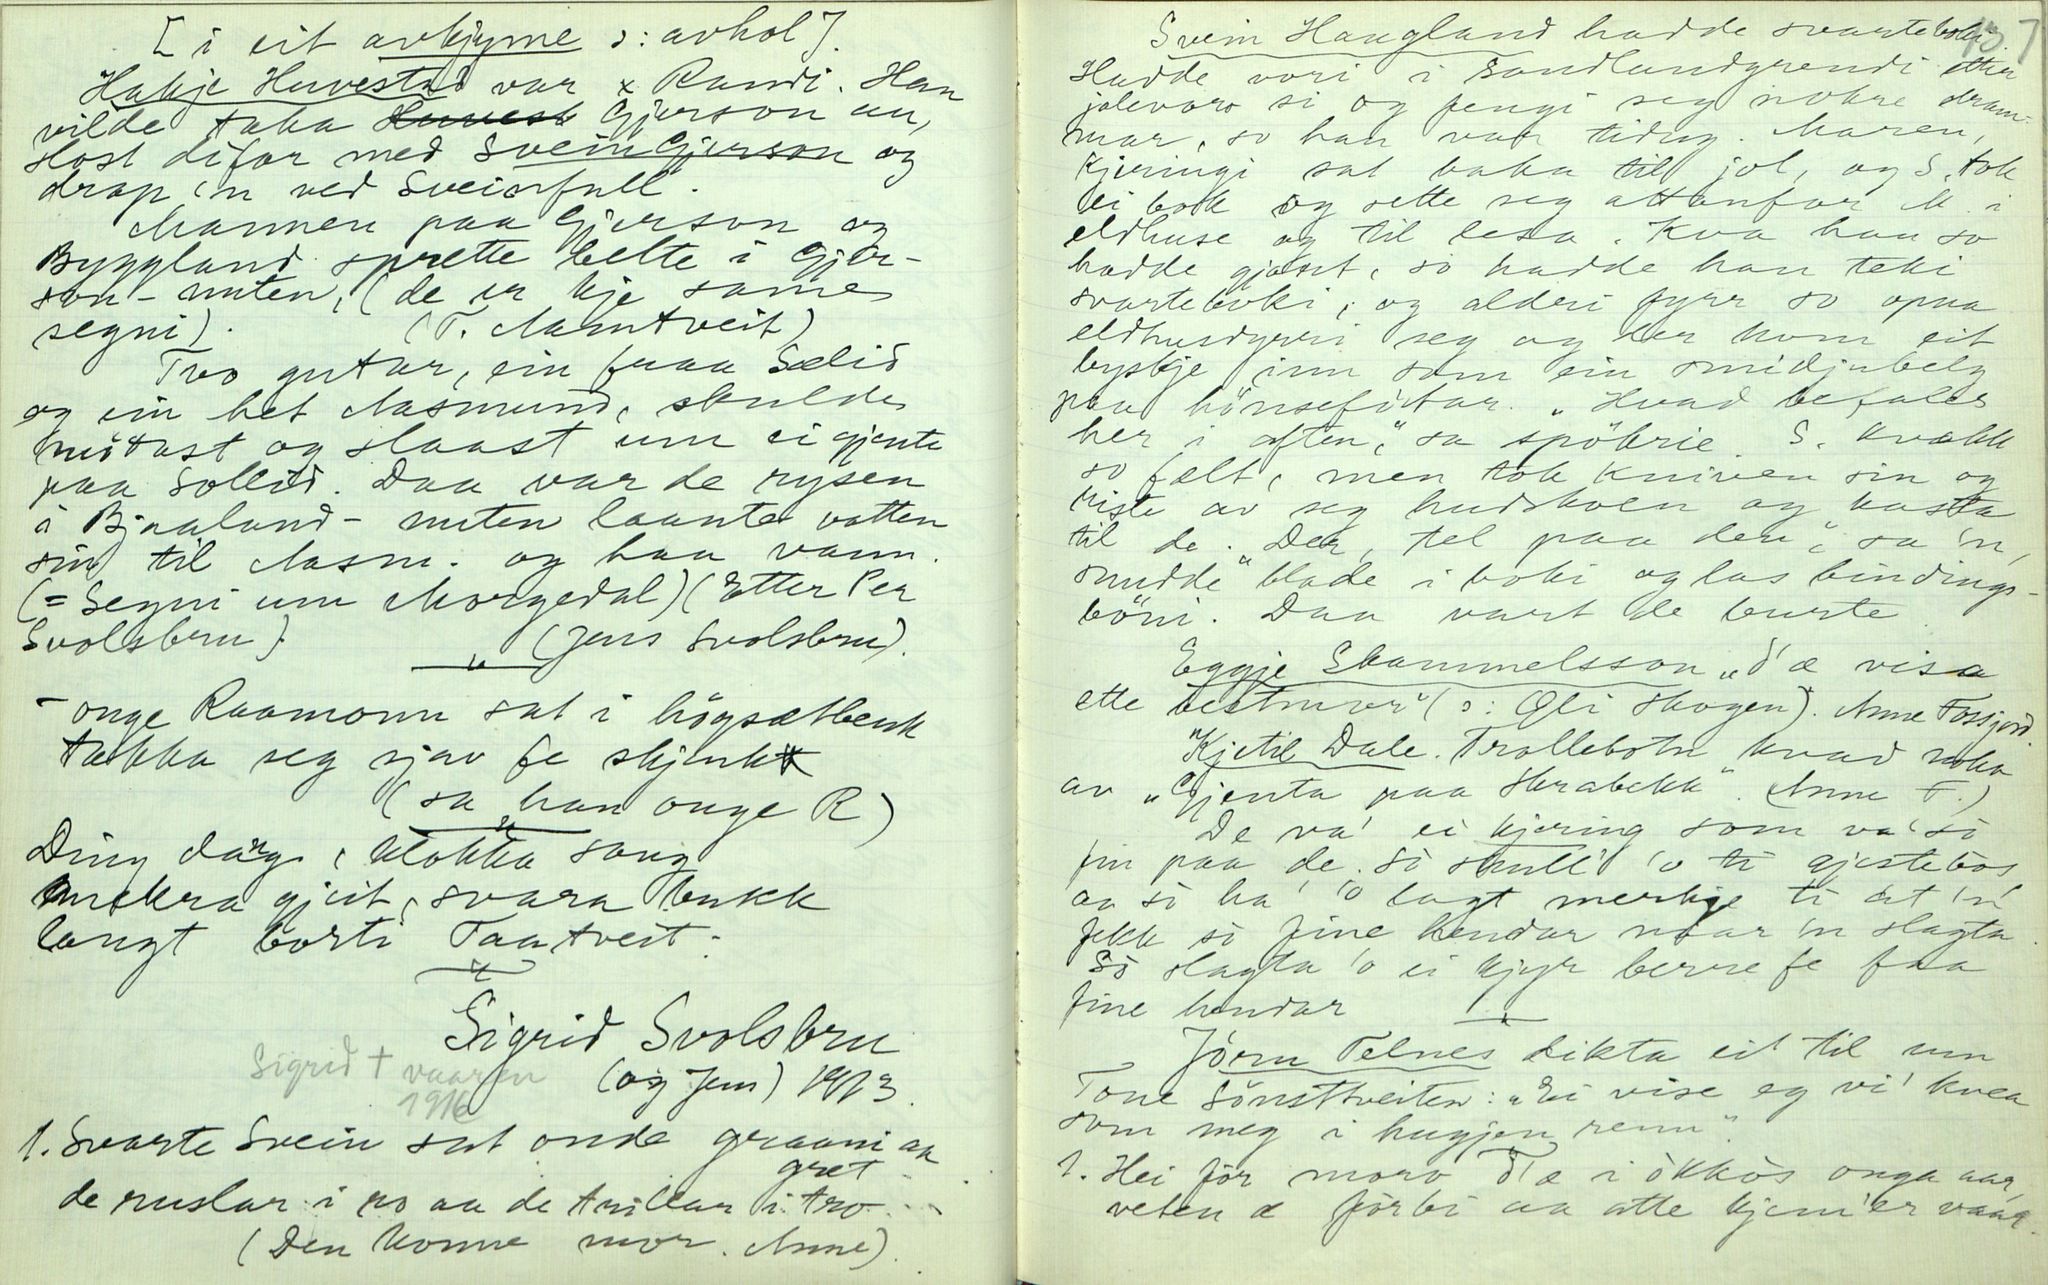 [i eit avkjyme ɔ: avhol].
Hakje Huvestad var x Randi. Han
vilde taka Huvest Gjerson an,
slost difor med Svein Gjerson og
drap 'n ved Sveinsfull.
Mannen paa Gjerson og
Byggland sprette belte i Gjer-
son-nuten, (de er kje same
segni). (T. Manntveit)
Tvo gutar, ein fraa Sælid
og ein het Aasmund, skulde
mötast og slaast um ei gjente
paa Sollid. Daa var de rysen
i Bjaaland-nuten laante votten
sin til Aasm. og haa vann.
(= Segni um Morgedal) (Etter Per
Svolsbru) (Jens Svolsbru).
– onge Raamonn sat i högsætbenk
takka seg sjav fe skjenk
(sa han onge R)
Ding dang, klokka song
mekra gjeit, svara bukk
langt borti Taatveit.
Sigrid Svolsbru
Sigrid † vaaren (og Jens) 1913.
1916
1. Svarte Svein sat onde graani aa
gret
de ruslar i ro aa de trillar i tro
(Den konne mor. Anne).
137
Svein Haugland hadde svarteboki.
Hadde vori i Sandlandgrendi etter
jolevaro si og fengi seg nokre dram-
mar, so han var tidug. Maren,
kjeringi sat baka til jol, og S. tok
ei bok og sette seg attanfor M. i
eldhuse og til lesa. Kva han so
hadde gjort, so hadde han teki
svarteboki, og alderi fyrr so opna
eldhusdyrri seg og der kom eit
byskje inn som ein smidjubelg
paa hönseføtar. "Hvad befales
her i aften," sa spökrie. S. kvækk
so fælt, men tok kniven sin og
riste av seg hudskoen og kasta
til de. "Der, tel paa den", sa 'n,
snudde blade i boki og las bindings-
böni. Daa vart de burte.
Eggje Skammelsson "d'æ visa
ette bestmor" (ɔ: Oli Skogen). Anne Fossjord.
Kjetil Dale. Trollebotn kvad noko
av "Gjenta paa Skrabekk". (Anne F.)
De va' ei kjering som va' so
fin paa de. So skull' 'o ti gjestebos
aa so ha' 'o lagt merkje ti at 'n
fekk so fine hendar naar 'n slagta.
So slagta 'o ei kjyr berre fe faa
fine hendar
Jörn Telnes dikta eit til um
Tone Sönsttveiten: "Ei vise eg vi' kvea
som meg i hugjen renn".
1. Hei för moro d'æ i ökkös onga aar,
veten æ förbi aa atte kjem'er vaar.